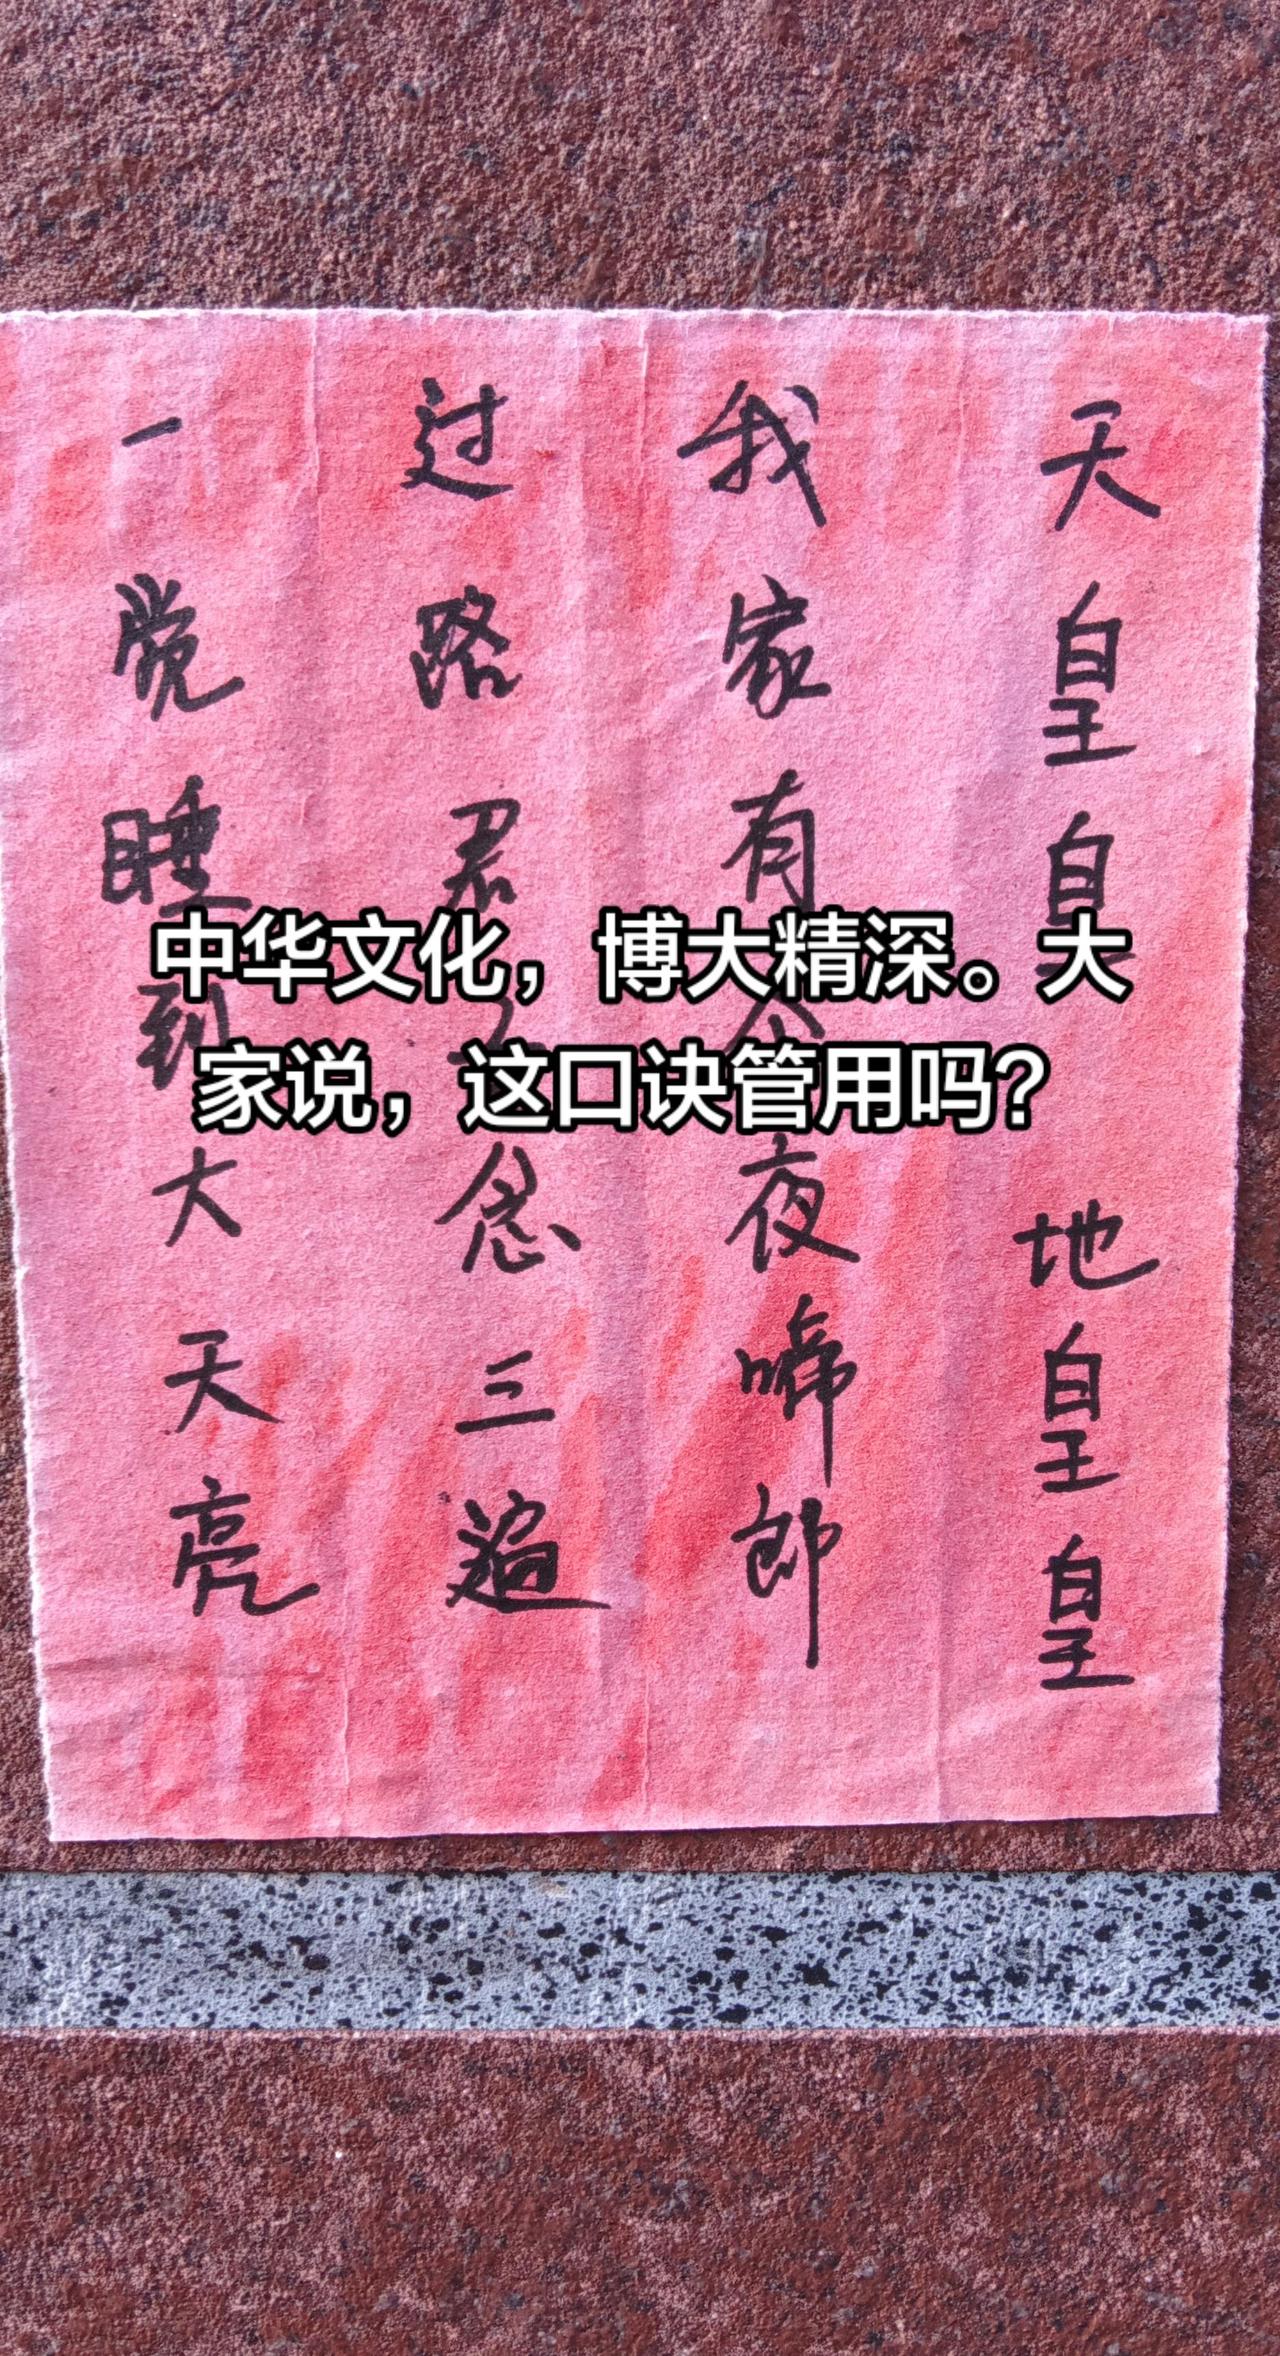 天皇皇 地皇皇
我家有个夜啼郎
过路君子念三遍
一觉睡到大天亮
中华文化，博大精深。大
家说，这口诀管用吗？